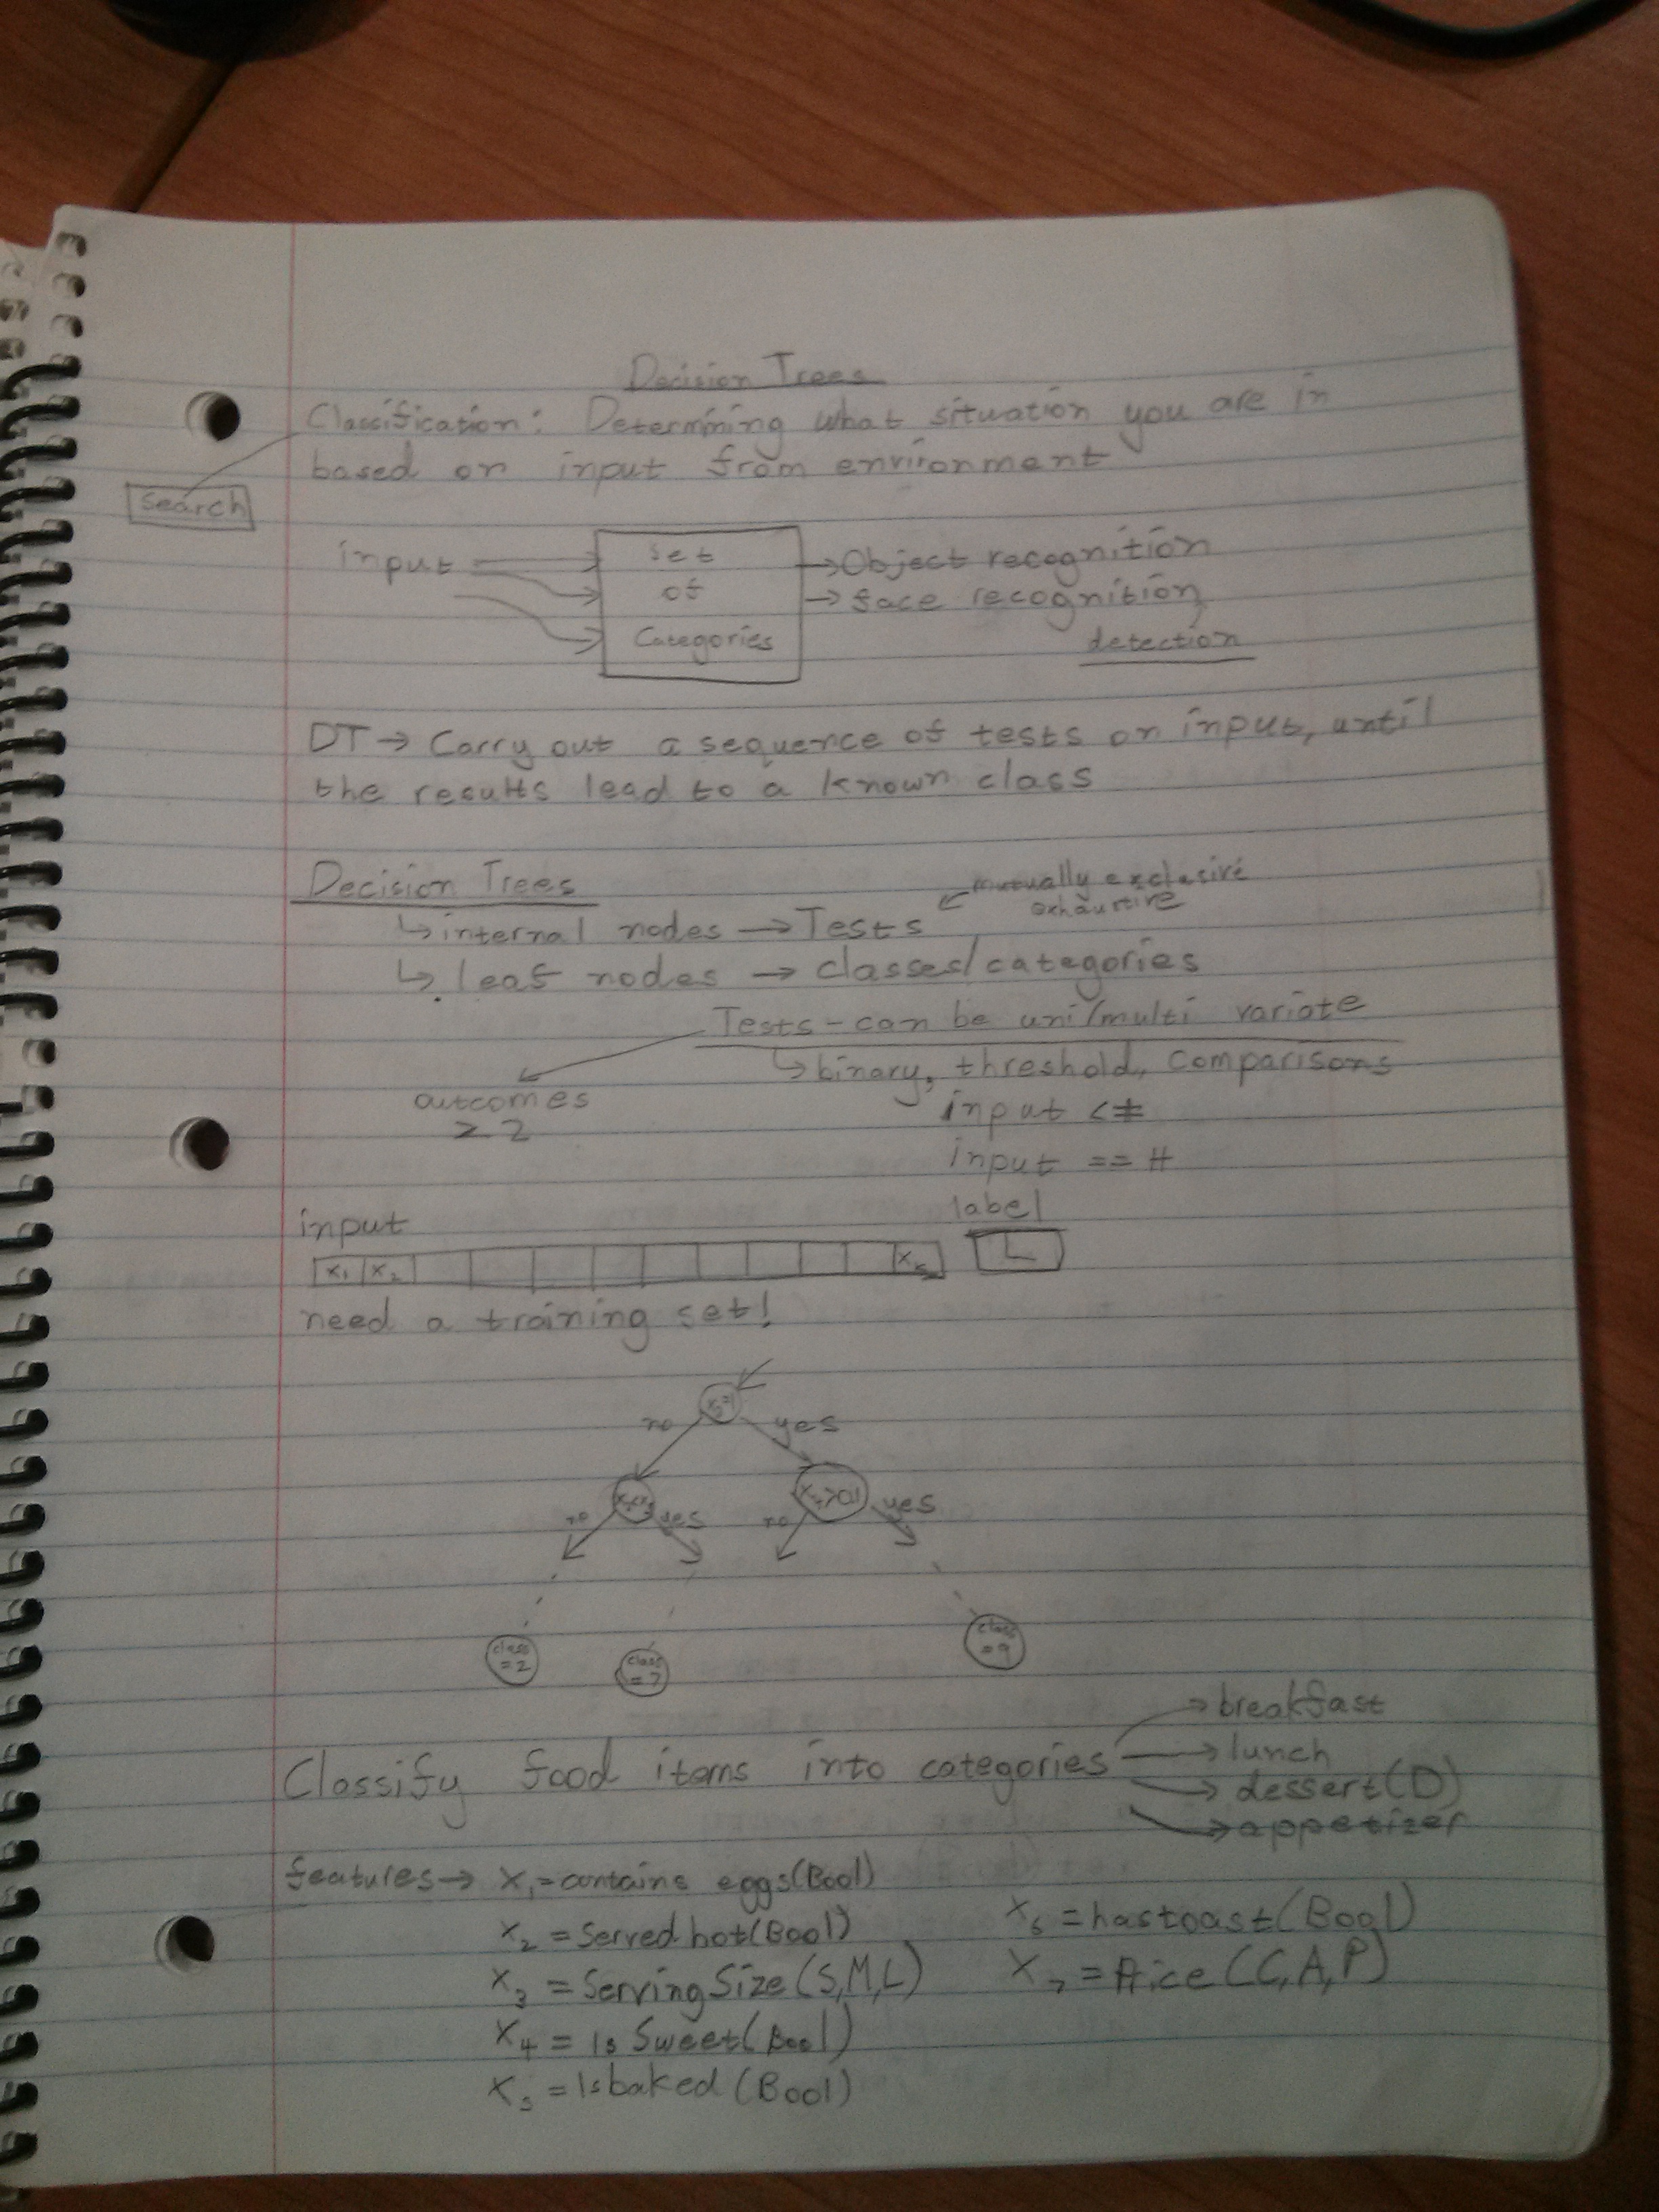 Decision Trees
Classification: Determining what situation you are in
based on input from environment
Search
input
set
of
Categories
→ Object recognition
→ face recognition,
detection
DT → Carry out a sequence of tests on input, until
the results lead to a known class
Decision Trees
mutually exclusive
exhaustive
↳ internal nodes → Tests
↳ leaf nodes → classes/categories
Tests - can be uni/multi variate
↳ binary, threshold, comparisons
outcomes
≥ 2
input <#
input == #
label
input
x₁ x₂
L
need a training set!
no yes
no yes no yes
class
=2
class
=7
class
=9
Classify food items into categories
→ breakfast
→ lunch
→ dessert(D)
→ appetizer
features → X₁ = contains eggs(Bool)
X₂ = Served hot(Bool)
X₃ = Serving Size (S,M,L)
X₄ = Is Sweet(Bool)
X₅ = Is baked (Bool)
X₆ = has toast(Bool)
X₇ = Price (C,A,P)